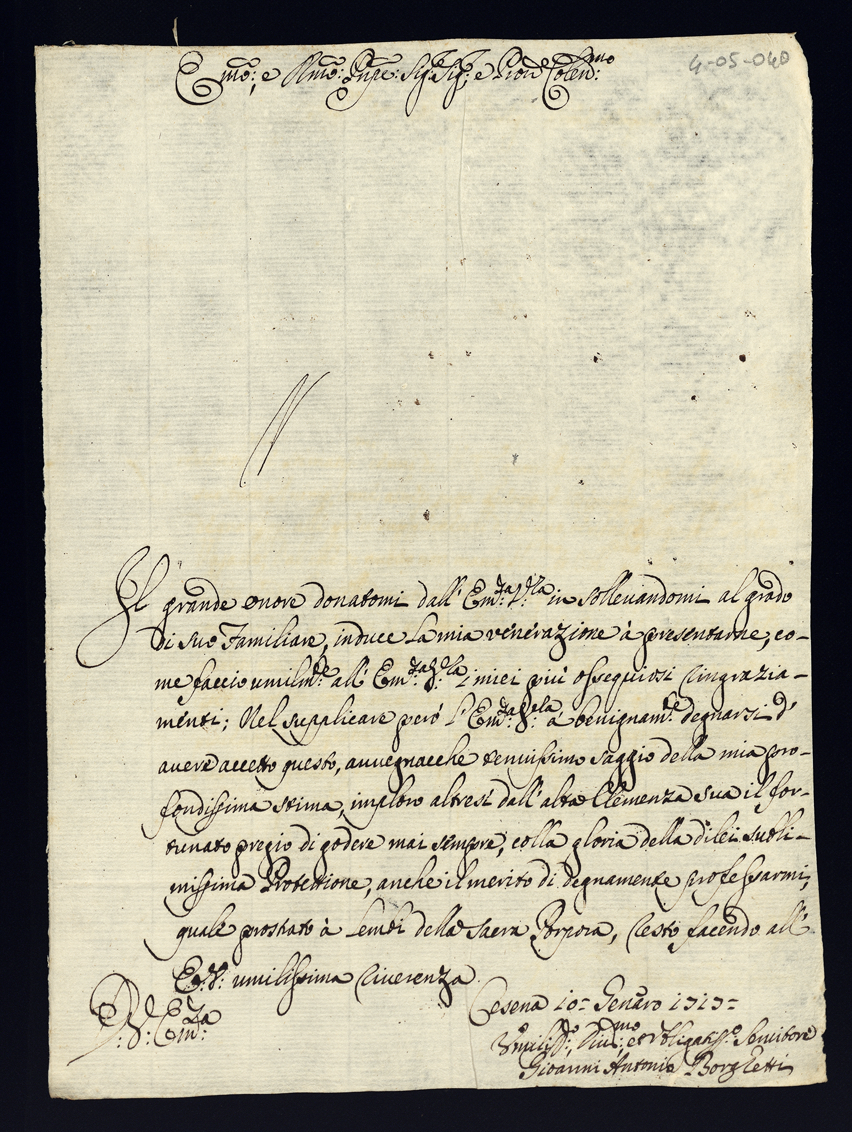 4-05-040
Emo: e Rmo: Prñpe: Sig: Sig: e Pron Colendmo:
Il grande onore donatomi dall' Emza Vra in sollevandomi al grado
di suo Familiare, induce la mia venerazione à presentarne, co-
me faccio umilmte: all' Emza i miei più ossequiosi ringrazia-
menti; Nel supplicare però l'Emza à benignamte degnarsi d'
avere accetto questo, avvegnacche tenuissimo saggio della mia pro-
fondissima stima, imploro altresi dall' alta Clemenza sua il for-
tunato pregio di godere mai sempre, colla gloria della di lei subli-
missima Protettione, anche il merito di degnamente professarmi;
quale prostrato à lembi della Sacra Porpora, resto facendo all'
E: V: umilissima riverenza.
Cesena 10= Genaro 1717=
D: V: Emza:
Umilisso:, Divmo:, et Obligatisso Servitore
Giovanni Antonio Borghetti